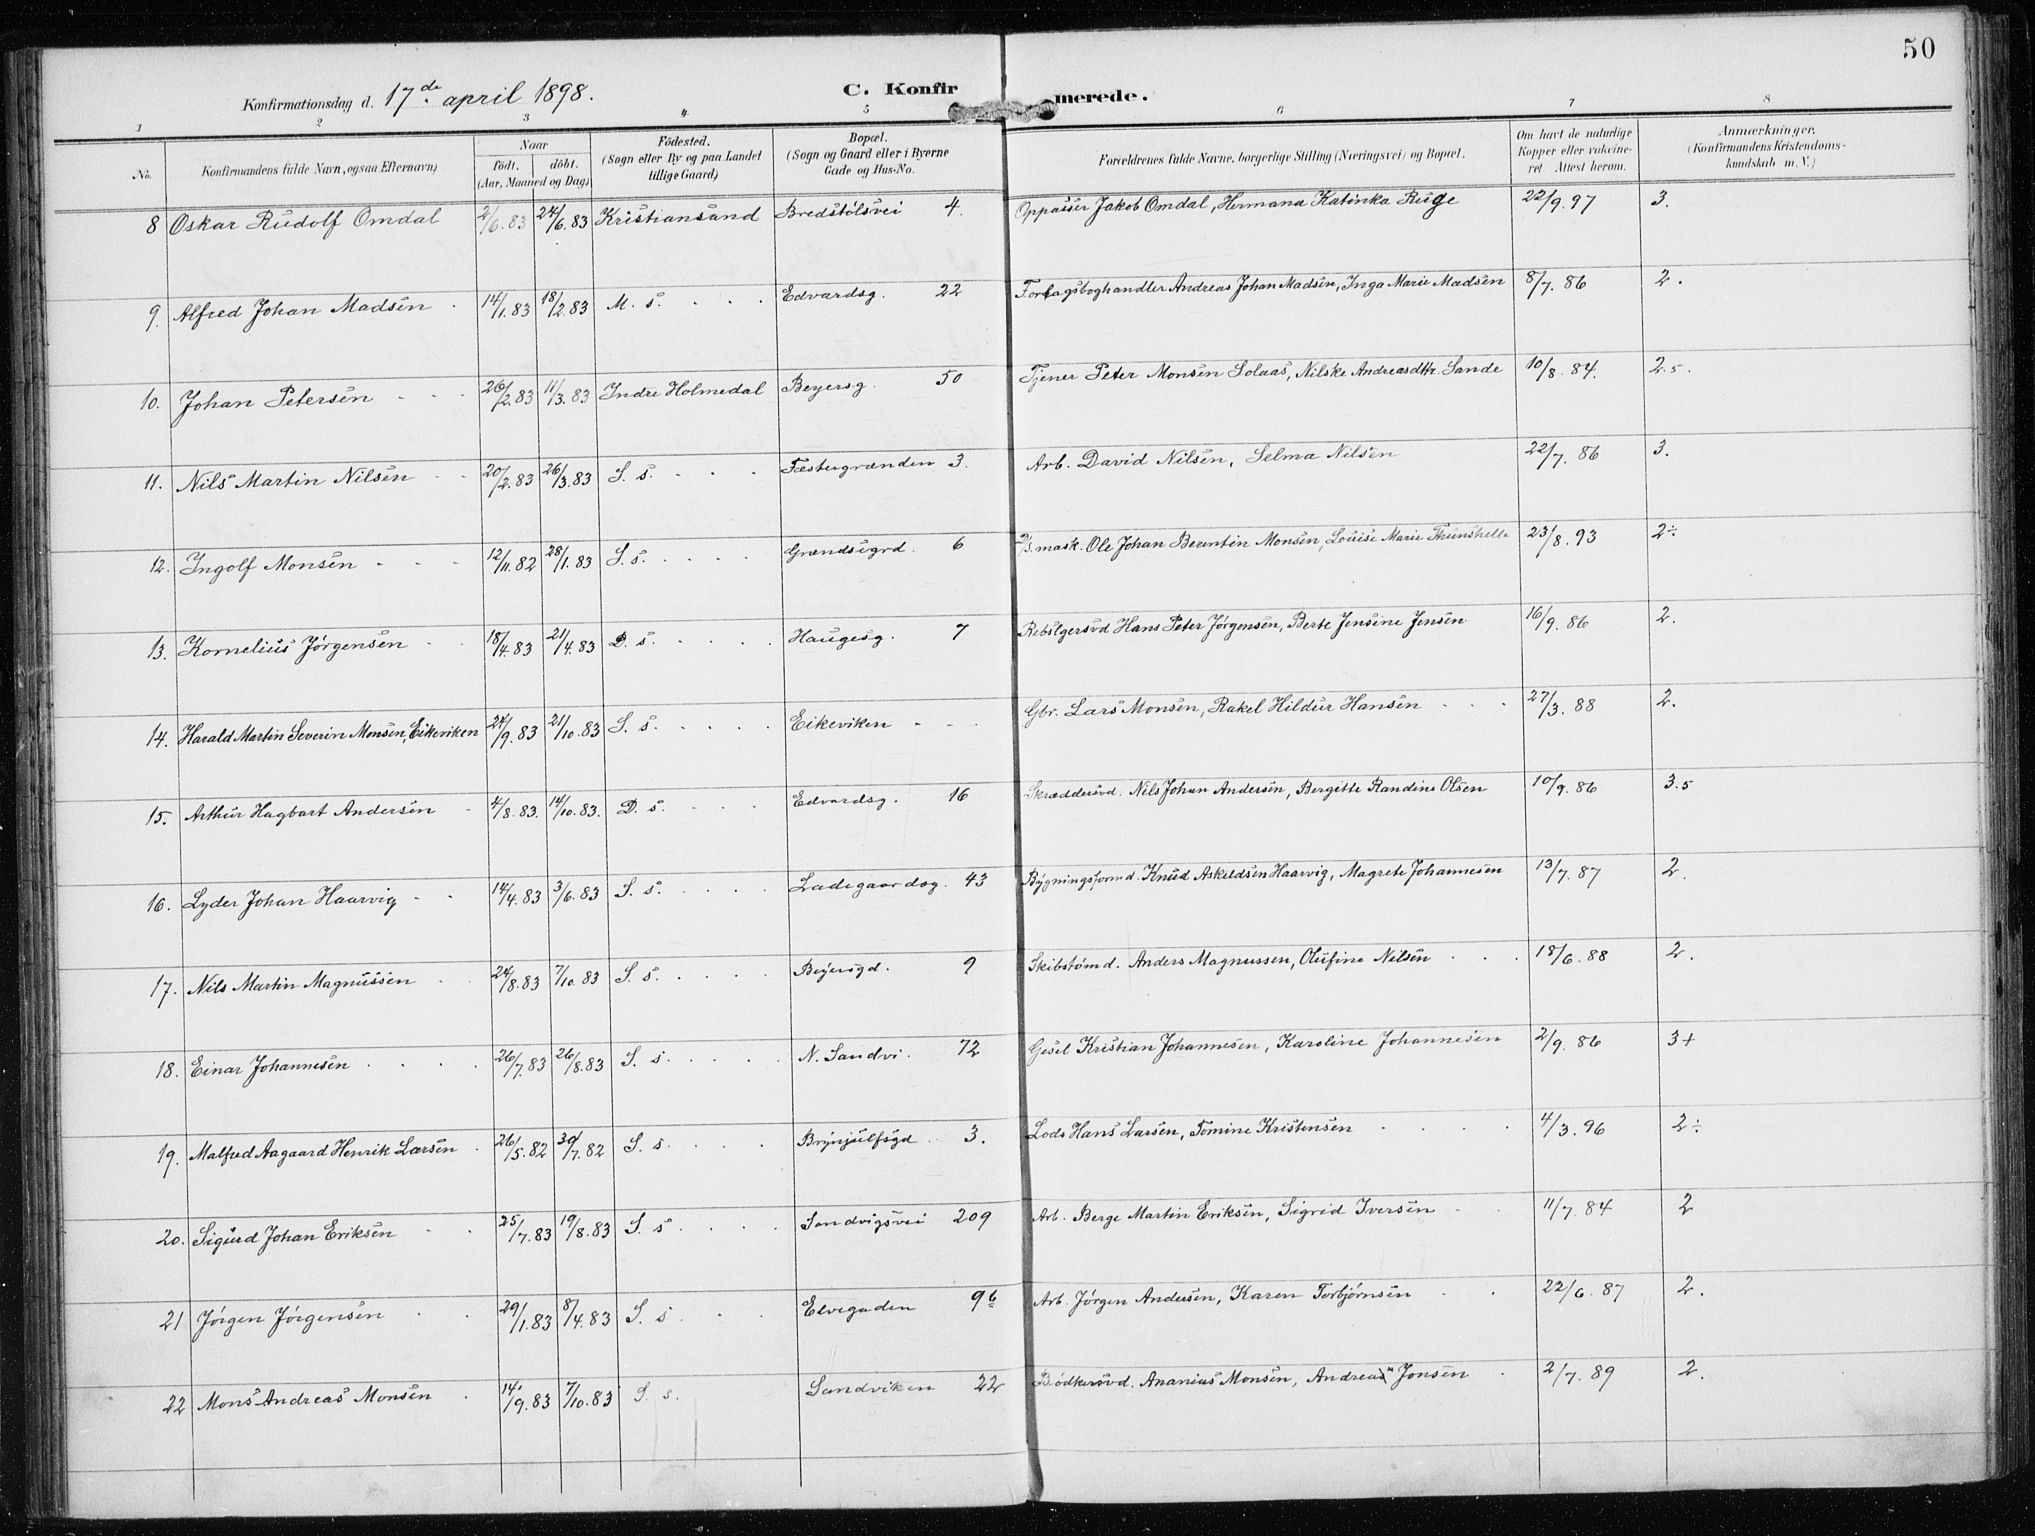 50
Konfirmationsdag d. 17de april 1898. C. Konfir merede.
1 2 3 4 5 6 7 8
No. Konfirmandens fulde Navn, ogsaa Efternavn) Naar født. døbt. (Aar, Maaned og Dag) Födested. (Sogn eller By og paa Landet tillige Gaard) Bopæl. (Sogn og Gaard eller i Byerne Gade og Hus-No. Forældrenes fulde Navne, borgerlige Stilling (Næringsvei) og Bopæl. Om havt de naturlige Kopper eller vakcineret Attest herom. Anmærkninger. (Konfirmandens Kristendomskundskab m. V.)
8 Oskar Rudolf Omdal 2/6.83 24/6.83 Kristiansand Bredstølsvei 4. Oppasser Jakob Omdal, Hermana Katinka Ruge 22/9.97 3.
9. Alfred Johan Madsen 14/1.83 18/2.83 M. s. Edvardsg. 22 Forlagsboghandler Andreas Johan Madsen, Inga Marie Madsen 8/7.86 2.
10. Johan Petersen 26/2.83 11/3.83 Indre Holmedal Beyersg. 50 Tjener Peter Monsen Solaas, Nilske Andreasdtr. Sande 10/8.84. 2.5.
11. Nils Martin Nilsen 20/2.83 26/3.83 S. s. Fæstergrænden 3. Arb. David Nilsen, Selma Nilsen 22/7.86 3.
12. Ingolf Monsen 12/11.82 28/1.83 S. s. Grændsegrd. 6 mask. Ole Johan Berentin Monsen, Louise Marie 23/8.93 2÷
13. Kornelius Jørgensen 18/4.83 21/4.83 D. s. Haugesg. 7 Rebslgersvd Hans Peter Jørgensen, Berte Jensine Jensen 16/9.86 2.
14. Harald Martin Severin Monsen, Eikeviken 24/9.83 21/10.83 S. s. Eikeviken Gbr. Lars Monsen, Rakel Hildur Hansen 27/3.88 2.
15. Arthur Hagbart Andersen 4/8.83. 14/10.83. D. s. Edvardsg. 16 Skræddersvd. Nils Johan Andersen, Bergitte Randine Olsen 10/9.86 3.5
16. Lyder Johan Haarvig 14/4.83 3/6.83 S. s. Ladegaardsg. 43 Bygningsformd. Knud Askeldsen Haarvig, Magrete Johannesen 13/7.87 2.
17. Nils Martin Magnussen 24/8.83 7/10.83 S. s. Beyersgd. 9 Skibstømd. Anders Magnussen, Olufine Nilsen 18/6.88 2.
18. Einar Johannesen 26/7.83 26/8.83 S. s. N. Sandvi. 72 Gesel Kristian Johannesen, Karoline Johannesen 2/9.86 3+
19. Malfred Aagaard Henrik Larsen 26/5.82 30/7.82 S. s. Brynjulfsgd 3. Lods Hans Larsen, Tomine Kristensen 4/3.96 2÷
20. Sigurd Johan Eriksen 25/7.83 19/8.83 S. s Sandvigsvei 209 Arb. Berge Martin Eriksen, Sigrid Iversen 11/7.84 2
21 Jørgen Jørgensen 29/1.83 8/4.83 S. s Elvegaden 9b Arb. Jørgen Andersen, Karen Torbjørnsen 22/6.87 2.
22 Mons Andreas Monsen 14/9.83 7/10.83 S. s. Sandviken 22 Bødkersvd. Ananias Monsen, Andrea Jonsen 2/7.89 2.